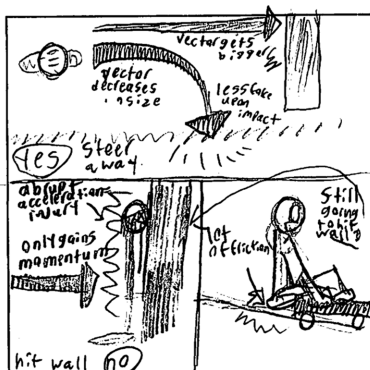 vector gets
bigger
vector
decreases
in size
less force
upon
impact
Yes
Steer
away
abrupt
acceleration
injury
only gains
momentum
hit wall no
lot
of friction
Still
going
to hit
wall